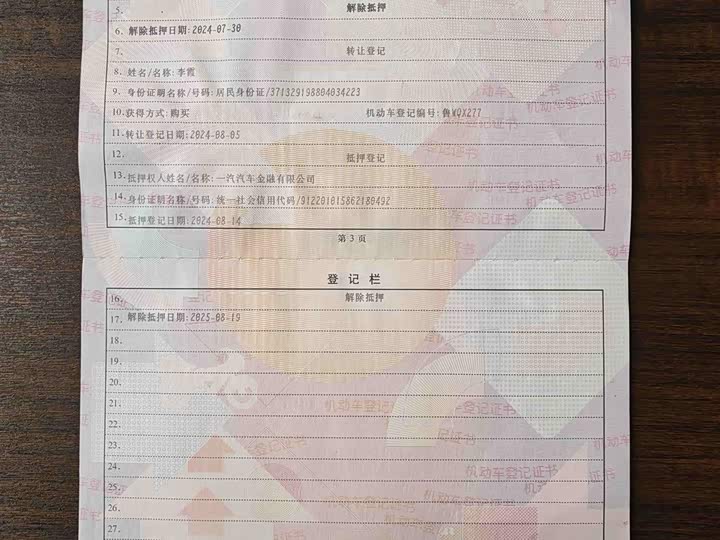 5. 解除抵押
6. 解除抵押日期:2024-07-30
7. 转让登记
8. 姓名/名称:李霞
9. 身份证明名称/号码:居民身份证/371329198804034223
10. 获得方式:购买 机动车登记编号:鲁WQX277
11. 转让登记日期:2024-08-05
12. 抵押登记
13. 抵押权人姓名/名称:一汽汽车金融有限公司
14. 身份证明名称/号码:统一社会信用代码/912201015862180492
15. 抵押登记日期:2024-08-14
第 3 页
登 记 栏
16. 解除抵押
17. 解除抵押日期:2025-08-19
18.
19.
20.
21.
22.
23.
24.
25.
26.
27.